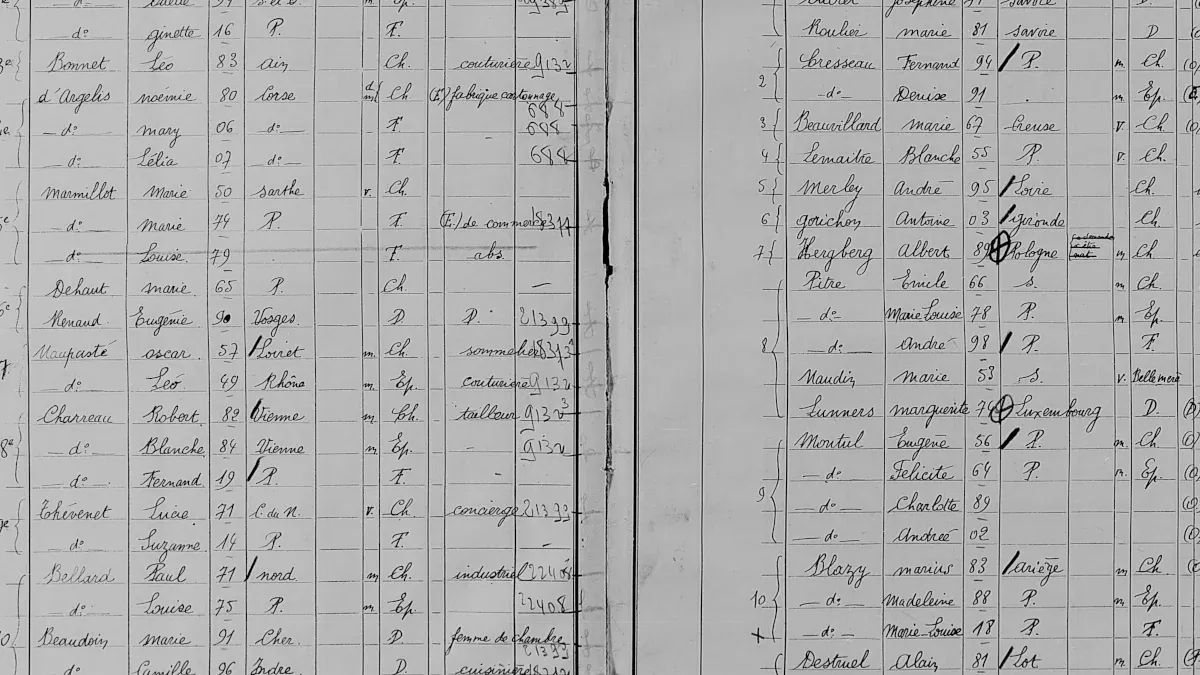 -d°- ginette 16 P. F.
Bonnet Léo 83 ain Ch. couturière 9132
d'Argelis noémie 80 Corse d m Ch (E) fabrique cartonnage 688
-d°- mary 06 -d°- F. - 688
-d°- Lélia 07 -d°- F. 688
Marmillot Marie 50 sarthe v. Ch.
-d°- Marie 74 P. F. (E) de commerce 18377
-d°- Louise 79 F. abs.
Dehaut marie 65 P. Ch. —
Renaud Eugénie 90 Vosges D. D. 21399
Maupasté oscar 57 Loiret m. Ch. sommelier
-d°- Léo 49 Rhône m Ep. couturière 9132
Charreau Robert 82 Vienne m Ch. tailleur 9132 3
8e -d°- Blanche 84 Vienne m Ep. - 9132
-d°- Fernand 19 P. F. -
Thévenet Lucie 71 C. du N. v. Ch. concierge 21399
-d°- Suzanne 14 P. F. —
Bellard Paul 71 nord m Ch. industriel 22408
-d°- Louise 75 P. m Ep. 22408
Beaudoin marie 91 Cher D. femme de chambre 21399
d° Camille 96 Indre D. cuisinière
Roulier marie 81 savoie D
Cresseau Fernand 94 P. m Ch.
2 -d°- Denise 91 . m Ep.
3 Beauvillard marie 67 Creuse v. Ch.
4 Lemaitre Blanche 55 P. v. Ch.
5 Merley André 95 Loire Ch.
6 gorichon Antoine 03 gironde Ch.
7 Hergberg Albert 89 Pologne m Ch
Pitre Emile 66 s. m Ch.
-d°- Marie Louise 78 P. m Ep.
8 -d°- André 98 P. F.
Naudin marie 53 s. v. Belle mère
Lunners marguerite 74 Luxembourg D.
Montul Eugène 56 P. m. Ch.
-d°- Felicité 64 P. m. Ep.
9 -d°- Charlotte 89
-d°- Andreé 02
Blazy marius 83 ariège m Ch
10 -d°- Madeleine 88 P. m Ep.
-d°- Marie-Louise 18 P. F.
Destruel Alain 81 Lot m Ch.